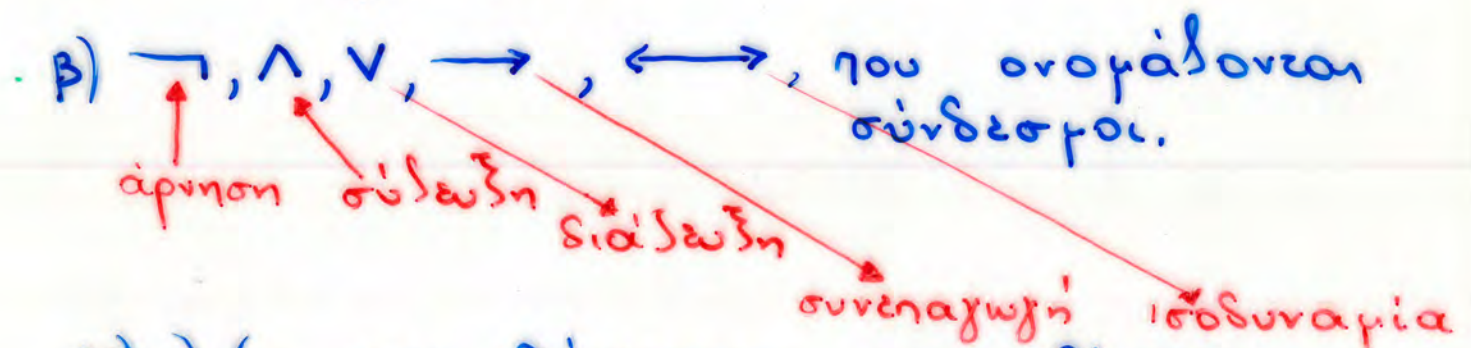 β) ¬, ∧, ∨, →, ↔, που ονομάζονται
σύνδεσμοι.
άρνηση σύζευξη
διάζευξη
συνεπαγωγή ισοδυναμία